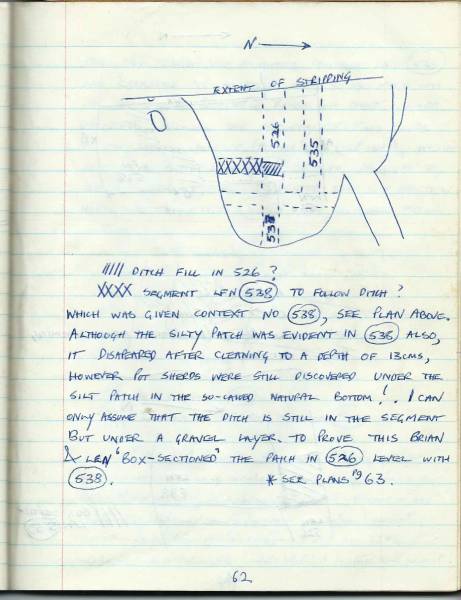 N
EXTENT OF STRIPPING
526
535
538
DITCH FILL IN 526 ?
XXXX SEGMENT LEN 538 TO FOLLOW DITCH ?
WHICH WAS GIVEN CONTEXT NO 538, SEE PLAN ABOVE.
ALTHOUGH THE SILTY PATCH WAS EVIDENT IN 538 ALSO,
IT DISAPEARED AFTER CLEANING TO A DEPTH OF 13CMS,
HOWEVER POT SHERDS WERE STILL DISCOVERED UNDER THE
SILT PATCH IN THE SO-CALLED NATURAL BOTTOM !. I CAN
ONLY ASSUME THAT THE DITCH IS STILL IN THE SEGMENT
BUT UNDER A GRAVEL LAYER. TO PROVE THIS BRIAN
& LEN "BOX-SECTIONED" THE PATCH IN 526 LEVEL WITH
538. * SEE PLANS pg 63.
62